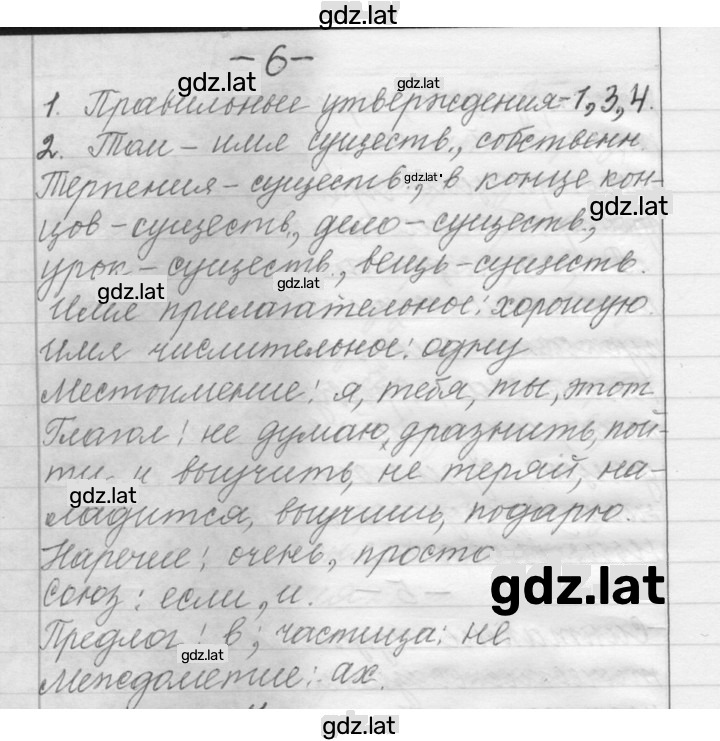 gdz.lat
-6-
gdz.lat
gdz.lat
1. Правильные утверждения-1,3,4.
2. Том - имя существ., собственн.
Терпения - существ., в конце кон-
gdz.lat
gdz.lat
цов - существ., дело - существ.,
урок - существ., вещь - существ.
gdz.lat
gdz.lat
Имя прилагательное: хорошую.
имя числительное: одну
местоимение: я, тебя, ты, этот
Глагол: не думаю, дразнить, пой-
ти и выучить, не теряй, на-
gdz.lat
ладится, выучишь, подарю.
Наречие: очень, просто
gdz.lat
союз: если, и.
Предлог: в; частица: не
gdz.lat
междометие: ах.
gdz.lat